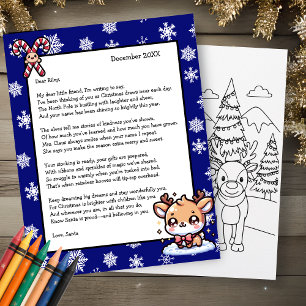 December 20XX
Dear Riley,
My dear little friend, I'm writing to say,
I've been thinking of you as Christmas draws near each day.
The North Pole is bustling with laughter and cheer,
And your name has been shining so brightly this year.
The elves tell me stories of kindness you've shown,
Of how much you've learned, and how much you have grown.
Mrs. Claus always smiles when your name I repeat,
She says you make the season extra merry and sweet.
Your stocking is ready, your gifts are prepared,
With ribbons and sparkles of magic we've shared.
So snuggle in warmly when you're tucked into bed,
That's when reindeer hooves will tip-tap overhead.
Keep dreaming big dreams and stay wonderfully you,
For Christmas is brighter with children like you.
And wherever you are, in all that you do,
Know Santa is proud—and believing in you.
Love, Santa